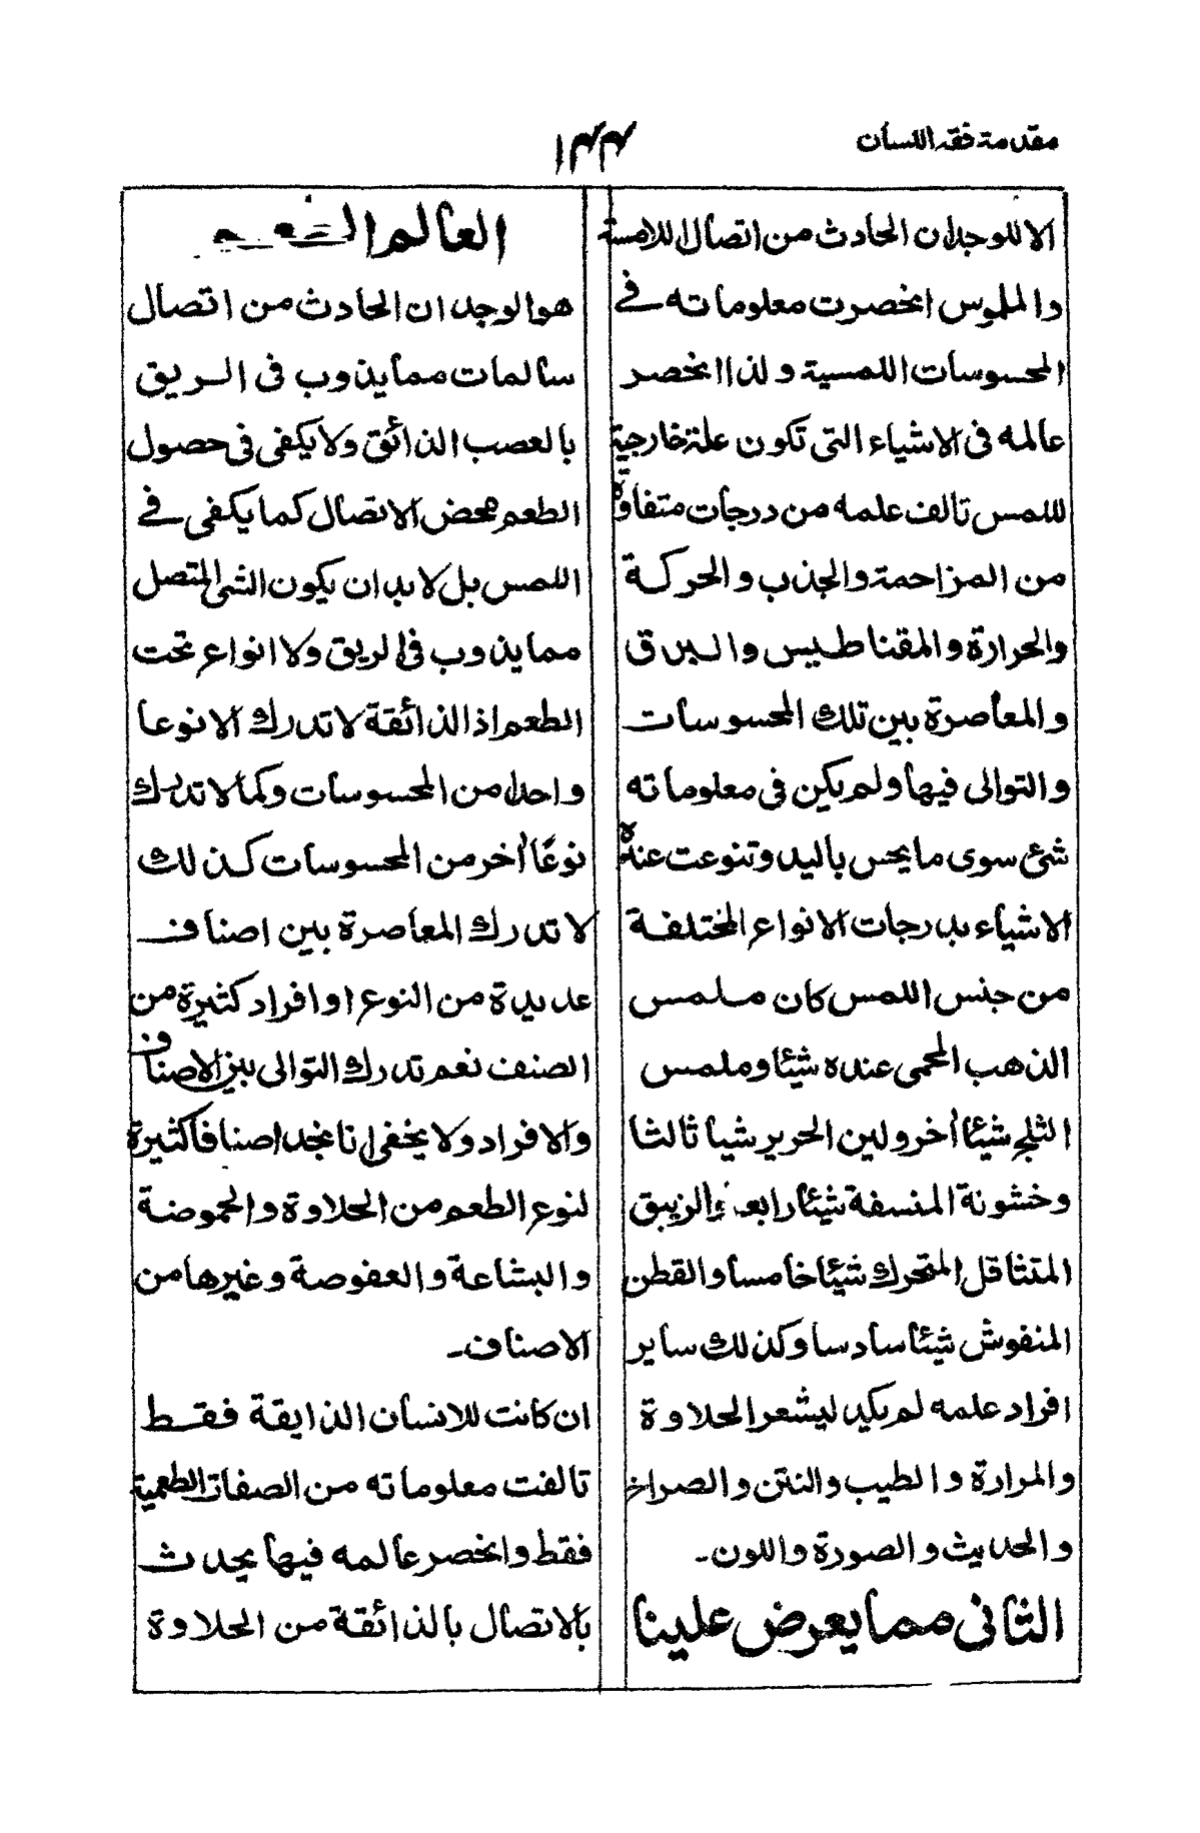 مقدمة فقه اللسان
الا للوجدان الحادث من اتصال اللامسة
والملموس انحصرت معلوماته فے
المحسوسات اللمسية ولذا انحصر
عالمه فى الاشياء التى تكون علة خارجية
للمس تالف علمه من درجات متفاوتة
من المزاحمة والجذب والحركة
والحرارة والمقناطيس والبرق
والمعاصرة بين تلك المحسوسات
والتوالى فيها ولم يكن فى معلوماته
شئ سوى ما يحس باليد وتنوعت عنده
الاشياء بدرجات الانواع المختلفة
من جنس اللمس كان ملمس
الذهب المحمى عنده شيئا وملمس
الثلج شيئا أخر ولين الحرير شيا ثالثا
وخشونة المنسفة شيئا رابعا والزيبق
المتثاقل المتحرك شيئا خامسا والقطن
المنفوش شيئا سادسا وكذلك ساير
افراد علمه لم يكد ليشعر الحلاوة
والمرارة والطيب والنتن والصراخ
والحديث والصورة واللون۔
الثانى مما يعرض علينا
العالم
هو الوجدان الحادث من اتصال
سالمات مما يذوب فى الريق
بالعصب الذائق ولا يكفى فى حصول
الطعم محض الاتصال كما يكفى فے
اللمس بل لا بد ان يكون الشى المتصل
مما يذوب فى الريق ولا انواع تحت
الطعم اذ الذائقة لا تدرك الا نوعا
واحدا من المحسوسات وكما لا تدرك
نوعًا أخر من المحسوسات كذلك
لا تدرك المعاصرة بين اصناف
عديدة من النوع او افراد كثيرة من
الصنف نعم تدرك التوالى بين الاصناف
والافراد ولا يخفى انا نجد اصنافا كثيرة
لنوع الطعم من الحلاوة والحموضة
والبشاعة والعفوصة وغيرها من
الاصناف۔
ان كانت للانسان الذايقة فقط
تالفت معلوماته من الصفات الطعمية
فقط وانحصر عالمه فيها يحدث
بالاتصال بالذائقة من الحلاوة